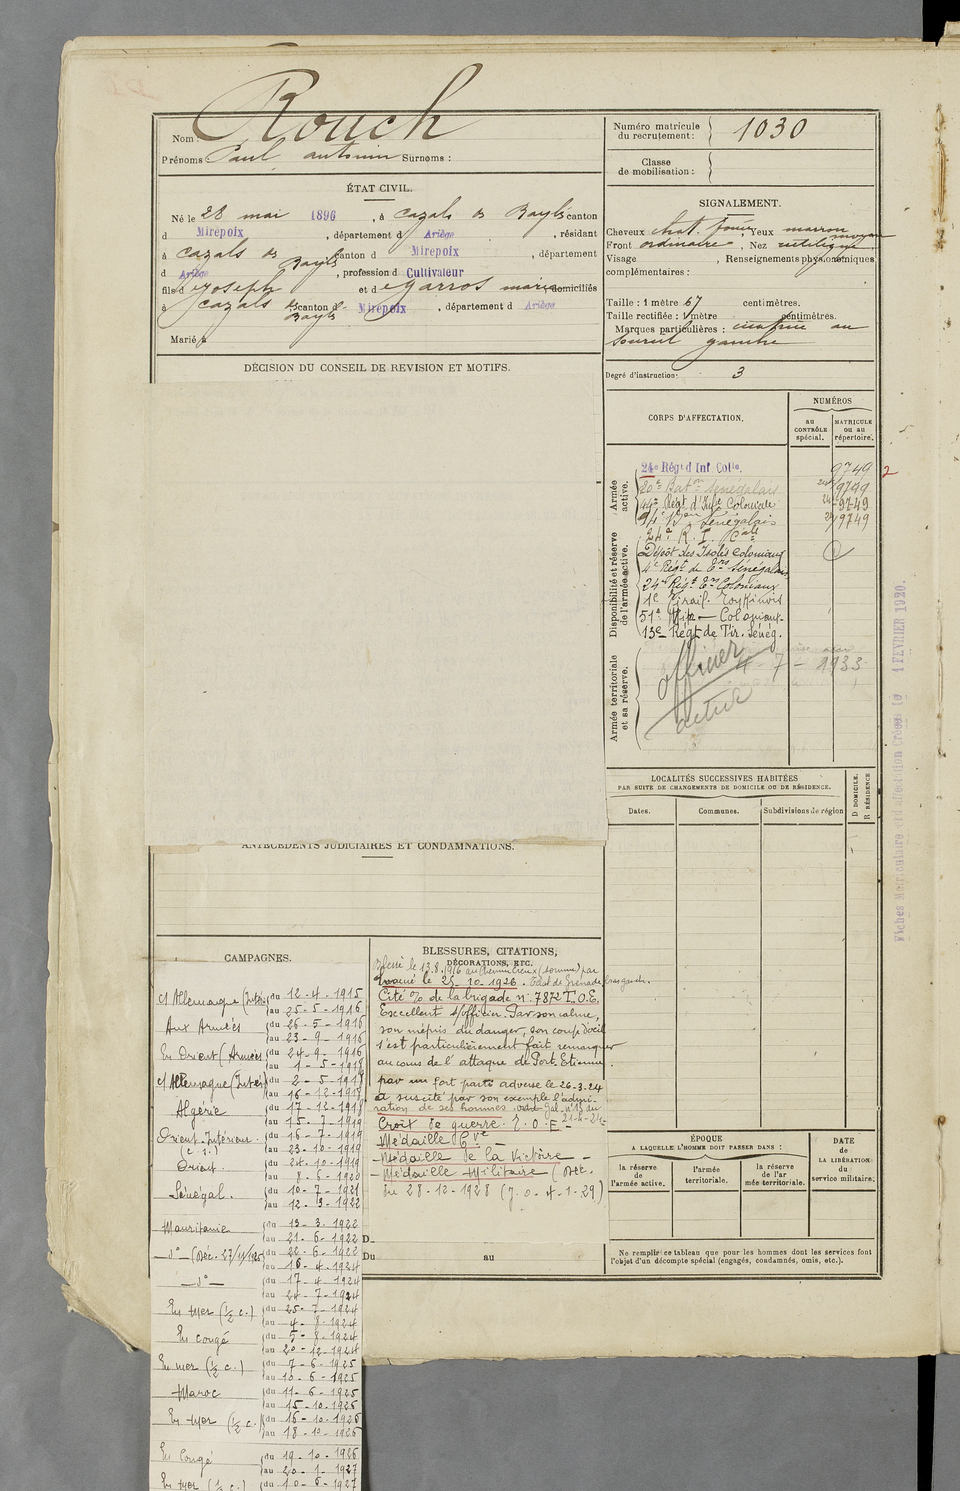 Rouch
Nom :
Prénoms : Paul Antonin Surnoms :
Numéro matricule du recrutement : 1030
Classe de mobilisation :
ÉTAT CIVIL.
Né le 28 mai 1896, à Cazals des Bayles canton
d Mirepoix, département d Ariège, résidant
à Cazals des Bayles canton d Mirepoix, département
d Ariège, profession d Cultivateur
fils d Joseph et d Garros Marie domiciliés
à Cazals des Bayles canton de Mirepoix, département d Ariège
Marié à
SIGNALEMENT.
Cheveux chat. foncé, Yeux marron
Front ordinaire, Nez rectiligne moyen
Visage , Renseignements physionomiques
complémentaires :
Taille : 1 mètre 67 centimètres.
Taille rectifiée : 1 mètre centimètres.
Marques particulières : cicatrice au
sourcil gauche
Degré d'instruction : 3
DÉCISION DU CONSEIL DE REVISION ET MOTIFS.
CORPS D'AFFECTATION.
NUMÉROS
au CONTRÔLE spécial.
MATRICULE ou au répertoire.
Armée active.
24e Régt d'Inf Colle. 9749 2
20e Baton Sénégalais 9799
44e Régt d'Infie Coloniale 9749
Sénégalais 9749
Disponibilité et réserve de l'armée active.
24e R. I. Cale
Dépôt des Isolés Coloniaux
4e Régt de Trs Sénégalais
24e Régt Trs Coloniaux
1e Tirail. Tonkinois
51e Coloniaux
13e Régt de Tir. Sénég.
Armée territoriale et sa réserve.
officier
active
4 - 7 - 1933
Fiches Matriculaire et d'affectation Créés le 1 FEVRIER 1920.
LOCALITÉS SUCCESSIVES HABITÉES
PAR SUITE DE CHANGEMENTS DE DOMICILE OU DE RÉSIDENCE.
Dates.
Communes.
Subdivisions de région
D DOMICILE.
R RÉSIDENCE
ANTÉCÉDENTS JUDICIAIRES ET CONDAMNATIONS.
CAMPAGNES.
c/ Allemagne (Intér) du 12-4-1915
au 25-5-1916
Aux Armées du 26-5-1916
au 23-9-1916
En Orient (Armées du 24-9-1916
au 1-5-1918
c/ Allemagne (Intér) du 2-5-1918
au 16-12-1918
Algérie du 17-12-1918
au 15-7-1919
Orient-Intérieur. du 16-7-1919
(c. s.) au 23-10-1919
Orient. du 24-10-1919
au 8-6-1920
Sénégal. du 10-7-1921
au 12-3-1922
Mauritanie du 13-3-1922
au 21-6-1922
- d° - (Déc. 27/11/1925 du 22-6-1922
au 16-4-1924
- d° - du 17-4-1924
au 24-7-1924
En mer (1/2 c.) du 25-7-1924
au 4-8-1924
En congé du 5-8-1924
au 20-12-1924
En mer (1/2 c.) du 7-6-1925
au 10-6-1925
Maroc du 11-6-1925
au 15-10-1926
En mer (1/2 c.) du 16-10-1926
au 18-10-1926
En congé du 19-10-1926
au 20-1-1927
En mer (1/2 c.) du 10-6-1927
BLESSURES, CITATIONS, DÉCORATIONS, ETC.
Blessé le 13.8.1916 au Chemin Creux (Somme) par
éclat de grenade bras gauche.
le 25-10-1926.
Cité % de la brigade n° 7872 T.O.E.
Excellent s/officier. Par son calme,
son mépris du danger, son coup d'œil
s'est particulièrement fait remarquer
au cours de l'attaque de Port-Etienne
par un fort parti adverse le 26-3-24
a suscité par son exemple l'admi-
ration de ses hommes. Gal. n° 13 du
Croix de guerre T.O.E -
- Médaille Cve -
- Médaille de la Victoire -
- Médaille Militaire (Déc.
du 28-12-1928 (J.O. 4-1-29)
Du au
ÉPOQUE
A LAQUELLE L'HOMME DOIT PASSER DANS :
la réserve de l'armée active.
l'armée territoriale.
la réserve de l'armée territoriale.
DATE de LA LIBÉRATION du service militaire.
Ne remplir ce tableau que pour les hommes dont les services font
l'objet d'un décompte spécial (engagés, condamnés, omis, etc.).